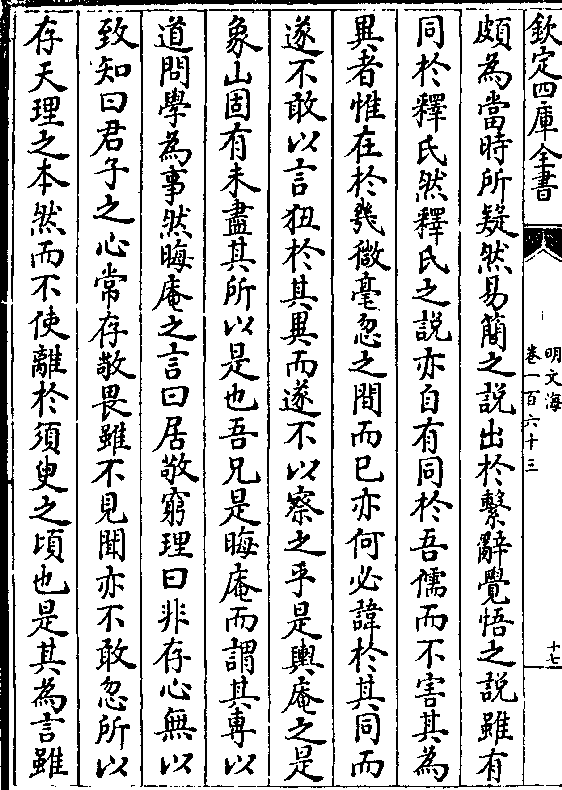 欽定四庫全書
明文海
卷一百六十三
十七
頗為當時所疑然易簡之説出於繫辭覺悟之説雖有
同於釋氏然釋氏之説亦自有同於吾儒而不害其為
異者惟在於幾微毫忽之間而已亦何必諱於其同而
遂不敢以言狃於其異而遂不以察之乎是輿庵之是
象山固有未盡其所以是也吾兄是晦庵而謂其專以
道問學為事然晦庵之言曰居敬窮理曰非存心無以
致知曰君子之心常存敬畏雖不見聞亦不敢忽所以
存天理之本然而不使離於須臾之頃也是其為言雖